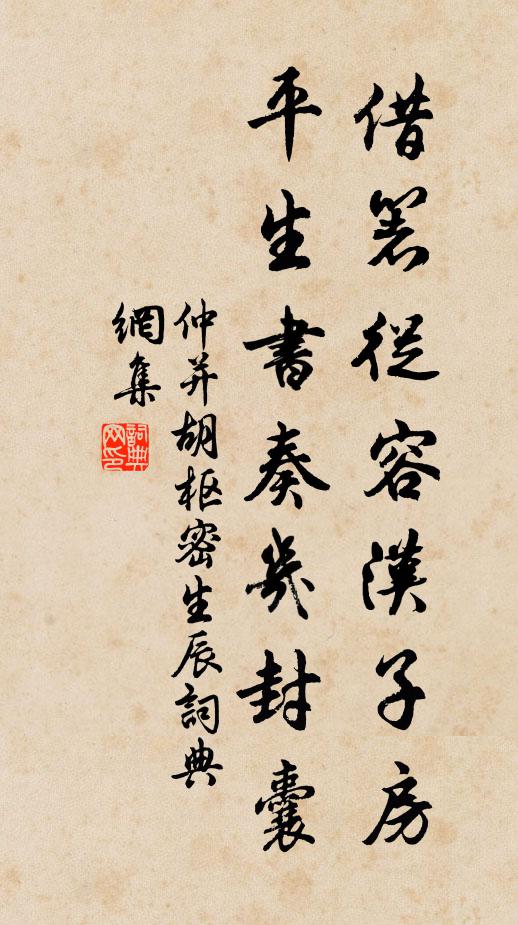 借箸從容漢子房
平生書奏幾封囊
仲并胡枢密生辰詞典
網集
詞典
网印